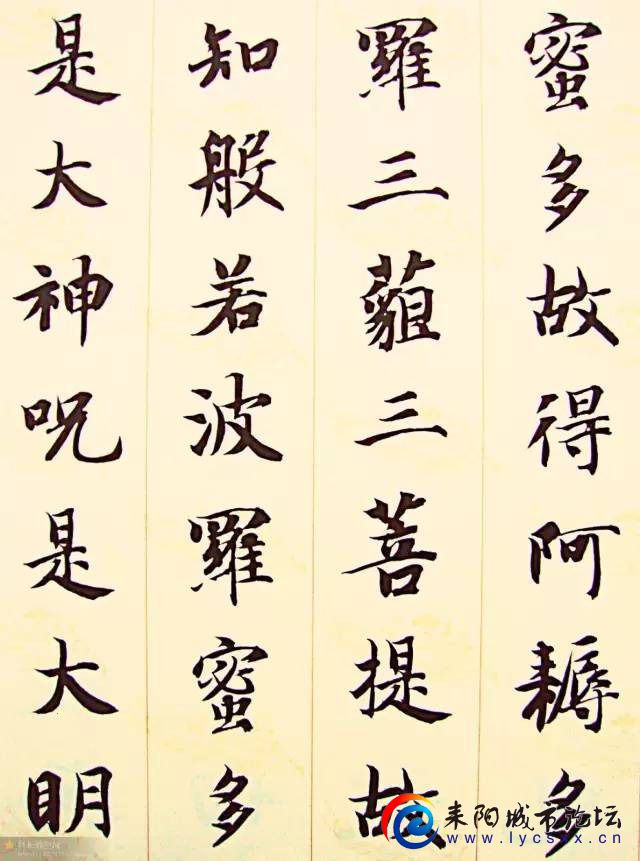 蜜多故得阿耨多
羅三藐三菩提故
知般若波羅蜜多
是大神呪是大明
耒阳城市论坛
www.lycsxx.cn